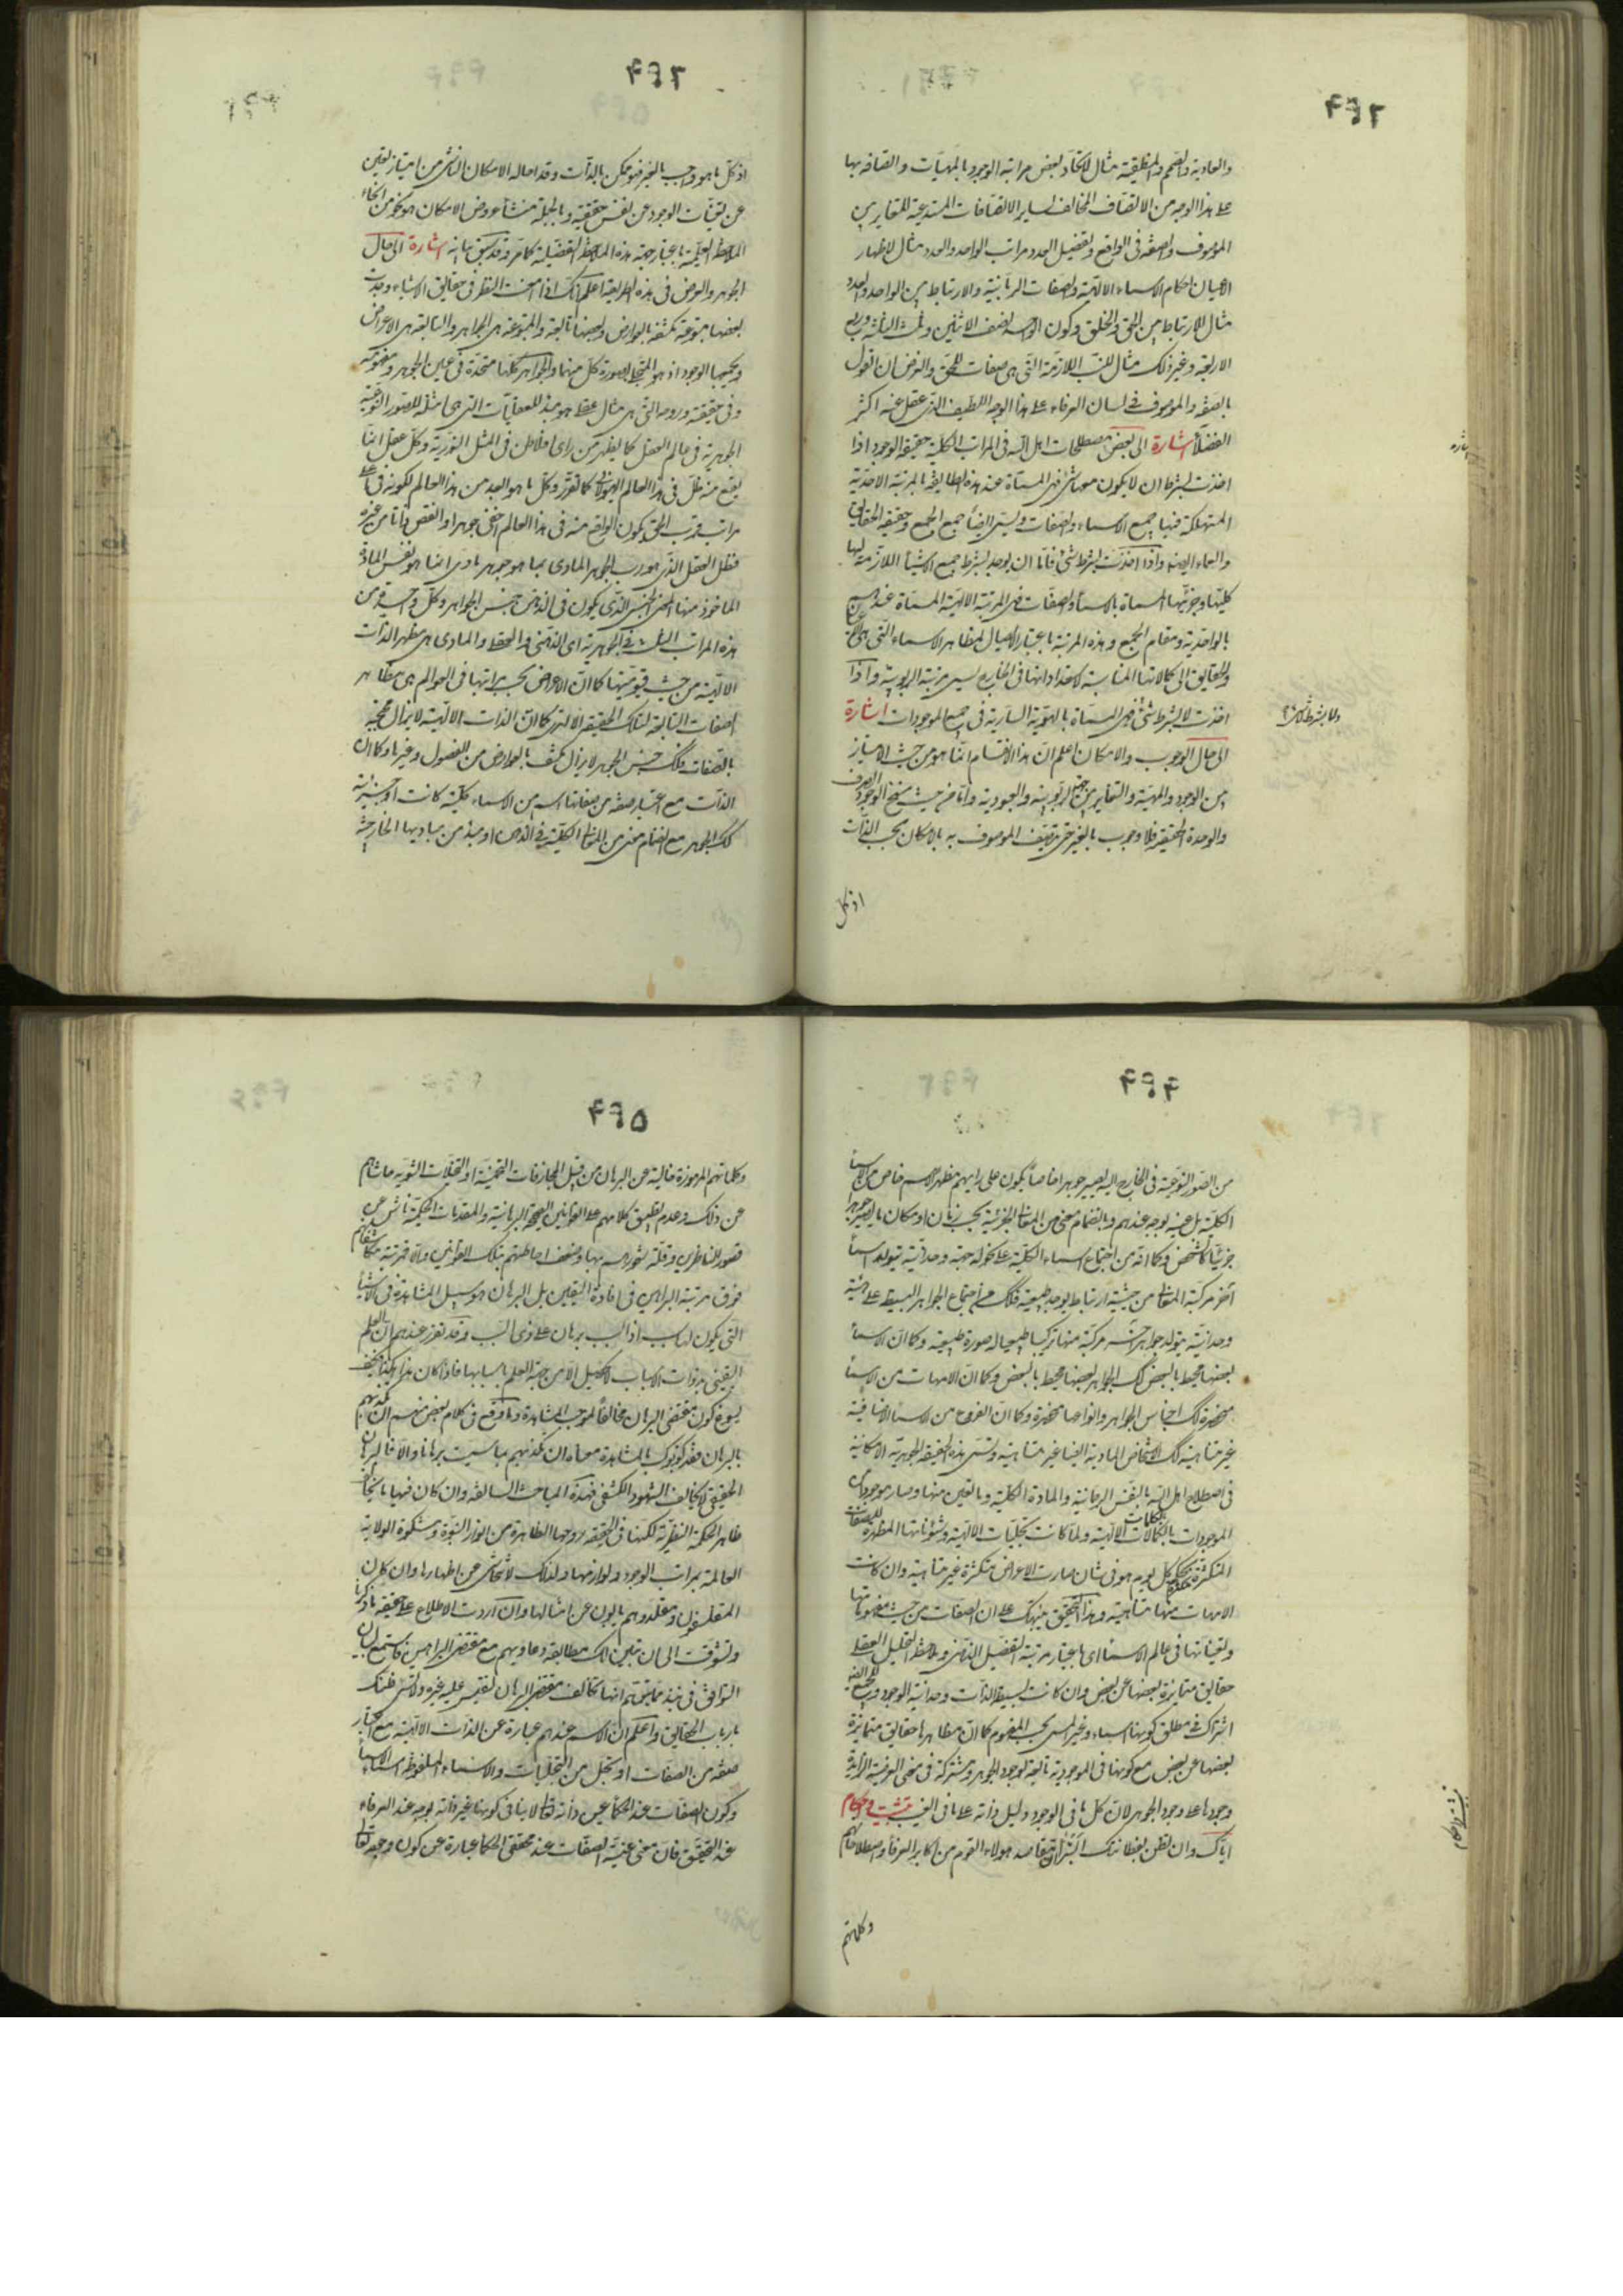 ٤٩٢
والعادية والصمم والمنطقية مثال لاتحاد بعض مراتب الوجود بالمهيات واتصافه بها
على هذا الوجه من الاتصاف المخالف لساير الاتصافات المستدعية للتغاير بين
الموصوف والصفة فى الواقع وتفصيل العدد مراتب الواحد والعدد مثال لاظهار
الاعيان احكام الاسماء الالهية والصفات الربانية والارتباط بين الواحد والعدد
مثال للارتباط بين الحق والخلق وكون الواحد نصف الاثنين وثلث الثلثة وربع
الاربعة وغير ذلك مثال للنسب اللازمة التى هى صفات للحق والغرض ان القول
بالصفة والموصوف فى لسان العرفاء على هذا الوجه اللطيف الذى غفل عنه اكثر
الفضلاء اشارة الى بعض مصطلحات اهل الله فى المراتب الكلية حقيقة الوجود اذا
اخذت بشرط ان لا يكون معها شئ فهى المسماة عند هذه الطايفة بالمرتبة الاحدية
المستهلكة فيها جميع الاسماء والصفات ويسمى ايضا جمع الجمع وحقيقة الحقايق
والعماء ايضا واذا اخذت بشرط شئ فاما ان يوخذ بشرط جميع الاشياء اللازمة لها
كليها وجزئيها المسماة بالاسماء والصفات فهى المرتبة الالهية المسماة عندهم
بالواحدية ومقام الجمع وهذه المرتبة باعتبار الايصال لمظاهر الاسماء التى هى الاعيان
والحقايق الى كمالاتها المناسبة لاستعداداتها فى الخارج يسمى مرتبة الربوبية واذا
اخذت لا بشرط شئ فهى المسماة بالهوية السارية فى جميع الموجودات اشارة
الى حال الوجوب والامكان اعلم ان هذا الانقسام انما هو من حيث الامتياز
بين الوجود والمهية والتغاير بين جهتى الربوبية والعبودية واما من حيث سنخ الوجود الصرف
والوحدة الحقيقية فلا وجوب بالغير حتى يتصف الموصوف به بالامكان بحسب الذات
اذ كل
اشاره
ولا بشرط لا شئ
٤٩٣
اذ كل ما هو واجب بالغير فهو ممكن بالذات وقد احاله الامكان الناشى من امتياز تعين
عن تعينات الوجود عن نفس حقيقته وبالجملة منشأ عروض الامكان هو نحو من انحاء
الملاحظة العلمية باعتبار جهة هذه الملاحظة التفصيلية كما مر وقد سبق بيانه اشارة الى حال
الجوهر والعرض فى هذه الطريقة اعلم انك اذا امعنت النظر فى حقايق الاشياء وجدت
بعضها متبوعة مكتنفة بالعوارض وبعضها تابعة والمتبوعة هى الجواهر والتابعة هى الاعراض
ويجمعها الوجود اذ هو المتجلى بصورة كل منهما والجواهر كلها متحدة فى عين الجوهر ومفهومه
وفى حقيقته وروحه التى هى مثال عقلى هو مبدء للعقليات التى هى امثلة للصور النوعية
الجوهرية فى عالم العقل كما يظهر من راى افلاطن فى المثل النورية وكل عقل انما
يقع منه ظل فى هذا العالم الهيولانى كما تقرر وكل ما هو ابعد من هذا العالم لكونه فى اعلى
مراتب قرب الحق يكون الواقع منه فى هذا العالم اخفى جوهرا وانقص ذاتا من غيره
فظل العقل الذى هو رب الجوهر المادى بما هو جوهر مادى انما هو نفس المادة
الماخوذ منها المعنى الجنسى الذى يكون فى الذهن جنس الجواهر وكل واحد من
هذه المراتب الثلث فى الجوهرية اى الذهنى والعقلى والمادى هى مظهر الذات
الالهية من حيث قيوميتها كما ان الاعراض بحسب مراتبها فى العوالم هى مظاهر
الصفات التابعة لتلك الحقيقة الا ترى كما ان الذات الالهية لا يزال محتجبة
بالصفات فكذلك جنس الجوهر لا يزال مكتنف بالعوارض من الفصول وغيرها وكما ان
الذات مع اعتبار صفة من صفاتها اسم من الاسماء كلية كانت او جزئية
كذلك الجوهر مع انضمام معنى من المعانى الكلية فى الذهن او مبدء من مباديها الخارجية
٤٩٤
من الصور النوعية فى الخارج اليه يصير جوهرا خاصا يكون على رايهم مظهر اسم خاص من الاسماء
الكلية بل عينه بوجه عندهم وبانضمام معنى من المعانى الجزئية بحسب زمان او مكان ما يصير جوهرا
جزئيا كالشخص وكما انه من اجتماع اسماء الكلية على نحو له جهة وحدانية يتولد اسماء
اخر مركبة المعانى من حيثية ارتباط بوجه طبيعية فكذلك من اجتماع الجواهر البسيطة على هيئة
وحدانية يتولد جواهر اخر مركبة منها تركيبا طبيعيا له صورة طبيعية وكما ان الاسماء
بعضها محيط بالبعض كذلك الجواهر بعضها محيط بالبعض وكما ان الامهات من الاسماء
منحصرة كذلك اجناس الجواهر وانواعها منحصرة وكما ان الفروع من الاسماء الاضافية
غير متناهية كذلك الاشخاص المادية ايضا غير متناهية وتسمى هذه الحقيقة الجوهرية الامكانية
فى اصطلاح اهل الله بالنفس الرحمانية والمادة الكلية وما تعين منها وصار موجودا من
الموجودات بالكلمات الالهية ولما كانت تجليات الالهية وشئوناتها المظهرة للصفات
المتكثرة بحكم كل يوم هو فى شان صارت الاعراض متكثرة غير متناهية وان كانت
الامهات منها متناهية وهذا التحقيق ينبهك على ان الصفات من حيث مفهوماتها
وتعيناتها فى عالم الاسماء اى باعتبار مرتبة التفصيل الذهنى وملاحظة التحليل العقلى
حقايق متمايزة بعضها عن بعض وان كانت بسيطة الذات وحدانية الوجود
اشتراك فى مطلق كونها اسماء وغير ليس بحسب المفهوم كما ان مظاهرها حقايق متمايزة
بعضها عن بعض مع كونها فى الموجودية تابعة لوجود الجوهر ومشتركة فى معنى العرضية الزايدة
وجودها على وجود الجوهر لان كل ما فى الوجود دليل وآية على ما فى الغيب تثبيت واحكام
اياك وان تظن بفطانتك البتراء ان مقاصد هولاء القوم من اكابر العرفاء واصطلاحاتهم
وكلماتهم
تثبيت واحكام
٤٩٥
وكلماتهم المرموزة خالية عن البرهان من قبيل المجازفات التخمينية او التخيلات الشعرية حاشاهم
عن ذلك وعدم تطبيق كلامهم على القوانين الصحيحة البرهانية والمقدمات الحكمية ناش عن
قصور الناظرين وقلة شعورهم بها وضعف احاطتهم بتلك القوانين والا فمرتبة مكاشفاتهم
فوق مرتبة البراهين فى افادة اليقين بل البرهان هو سبيل المشاهدة فى الاشياء
التى يكون لها سبب اذ السبب برهان على ذى السبب وقد تقرر عندهم ان العلم
اليقينى بذوات الاسباب لا يحصل الا من جهة العلم باسبابها فاذا كان هذا هكذا فكيف
يسوغ كون مقتضى البرهان مخالفا لموجب المشاهدة وما وقع فى كلام بعض منهم ان تكذيبهم
بالبرهان فقد كذبوك بالمشاهدة معناه ان تكذبهم بما سميت برهانا والا فالبرهان
الحقيقى لا يخالف الشهود الكشفى فهذه المباحث السالفة وان كان فيها ما يخالف
ظاهر الحكمة النظرية لكنها فى الحقيقة روحها الظاهرة من انوار النبوة ومشكوة الولاية
العالمة بمراتب الوجود ولوازمها ولذلك لا نتحاشى عن اظهارها وان كان
المتفلسفون ومقلدوهم يابون عن امثالها وان اردت الاطلاع على حقيقة ما ذكرنا
وتشوقت الى ان يتبين لك مطابقة دعاويهم مع مقتضى البراهين فاستمع لبيان
التوافق فى نبذ مما يتوهم انها تخالف مقتضى البرهان لتقيس عليه غيره ولا تسئ ظنك
بارباب الحقايق واعلم ان الاسم عندهم عبارة عن الذات الالهية مع اعتبار
صفة من الصفات او تجل من التجليات والاسماء الملفوظة اسماء الاسماء
وكون الصفات عند الحكماء عين ذاته تعالى لا ينافى كونها غير ذاته بوجه عند العرفاء
عند التحقيق فان معنى عينية الصفات عند محققى الحكماء عبارة عن كون وجوده تعالى